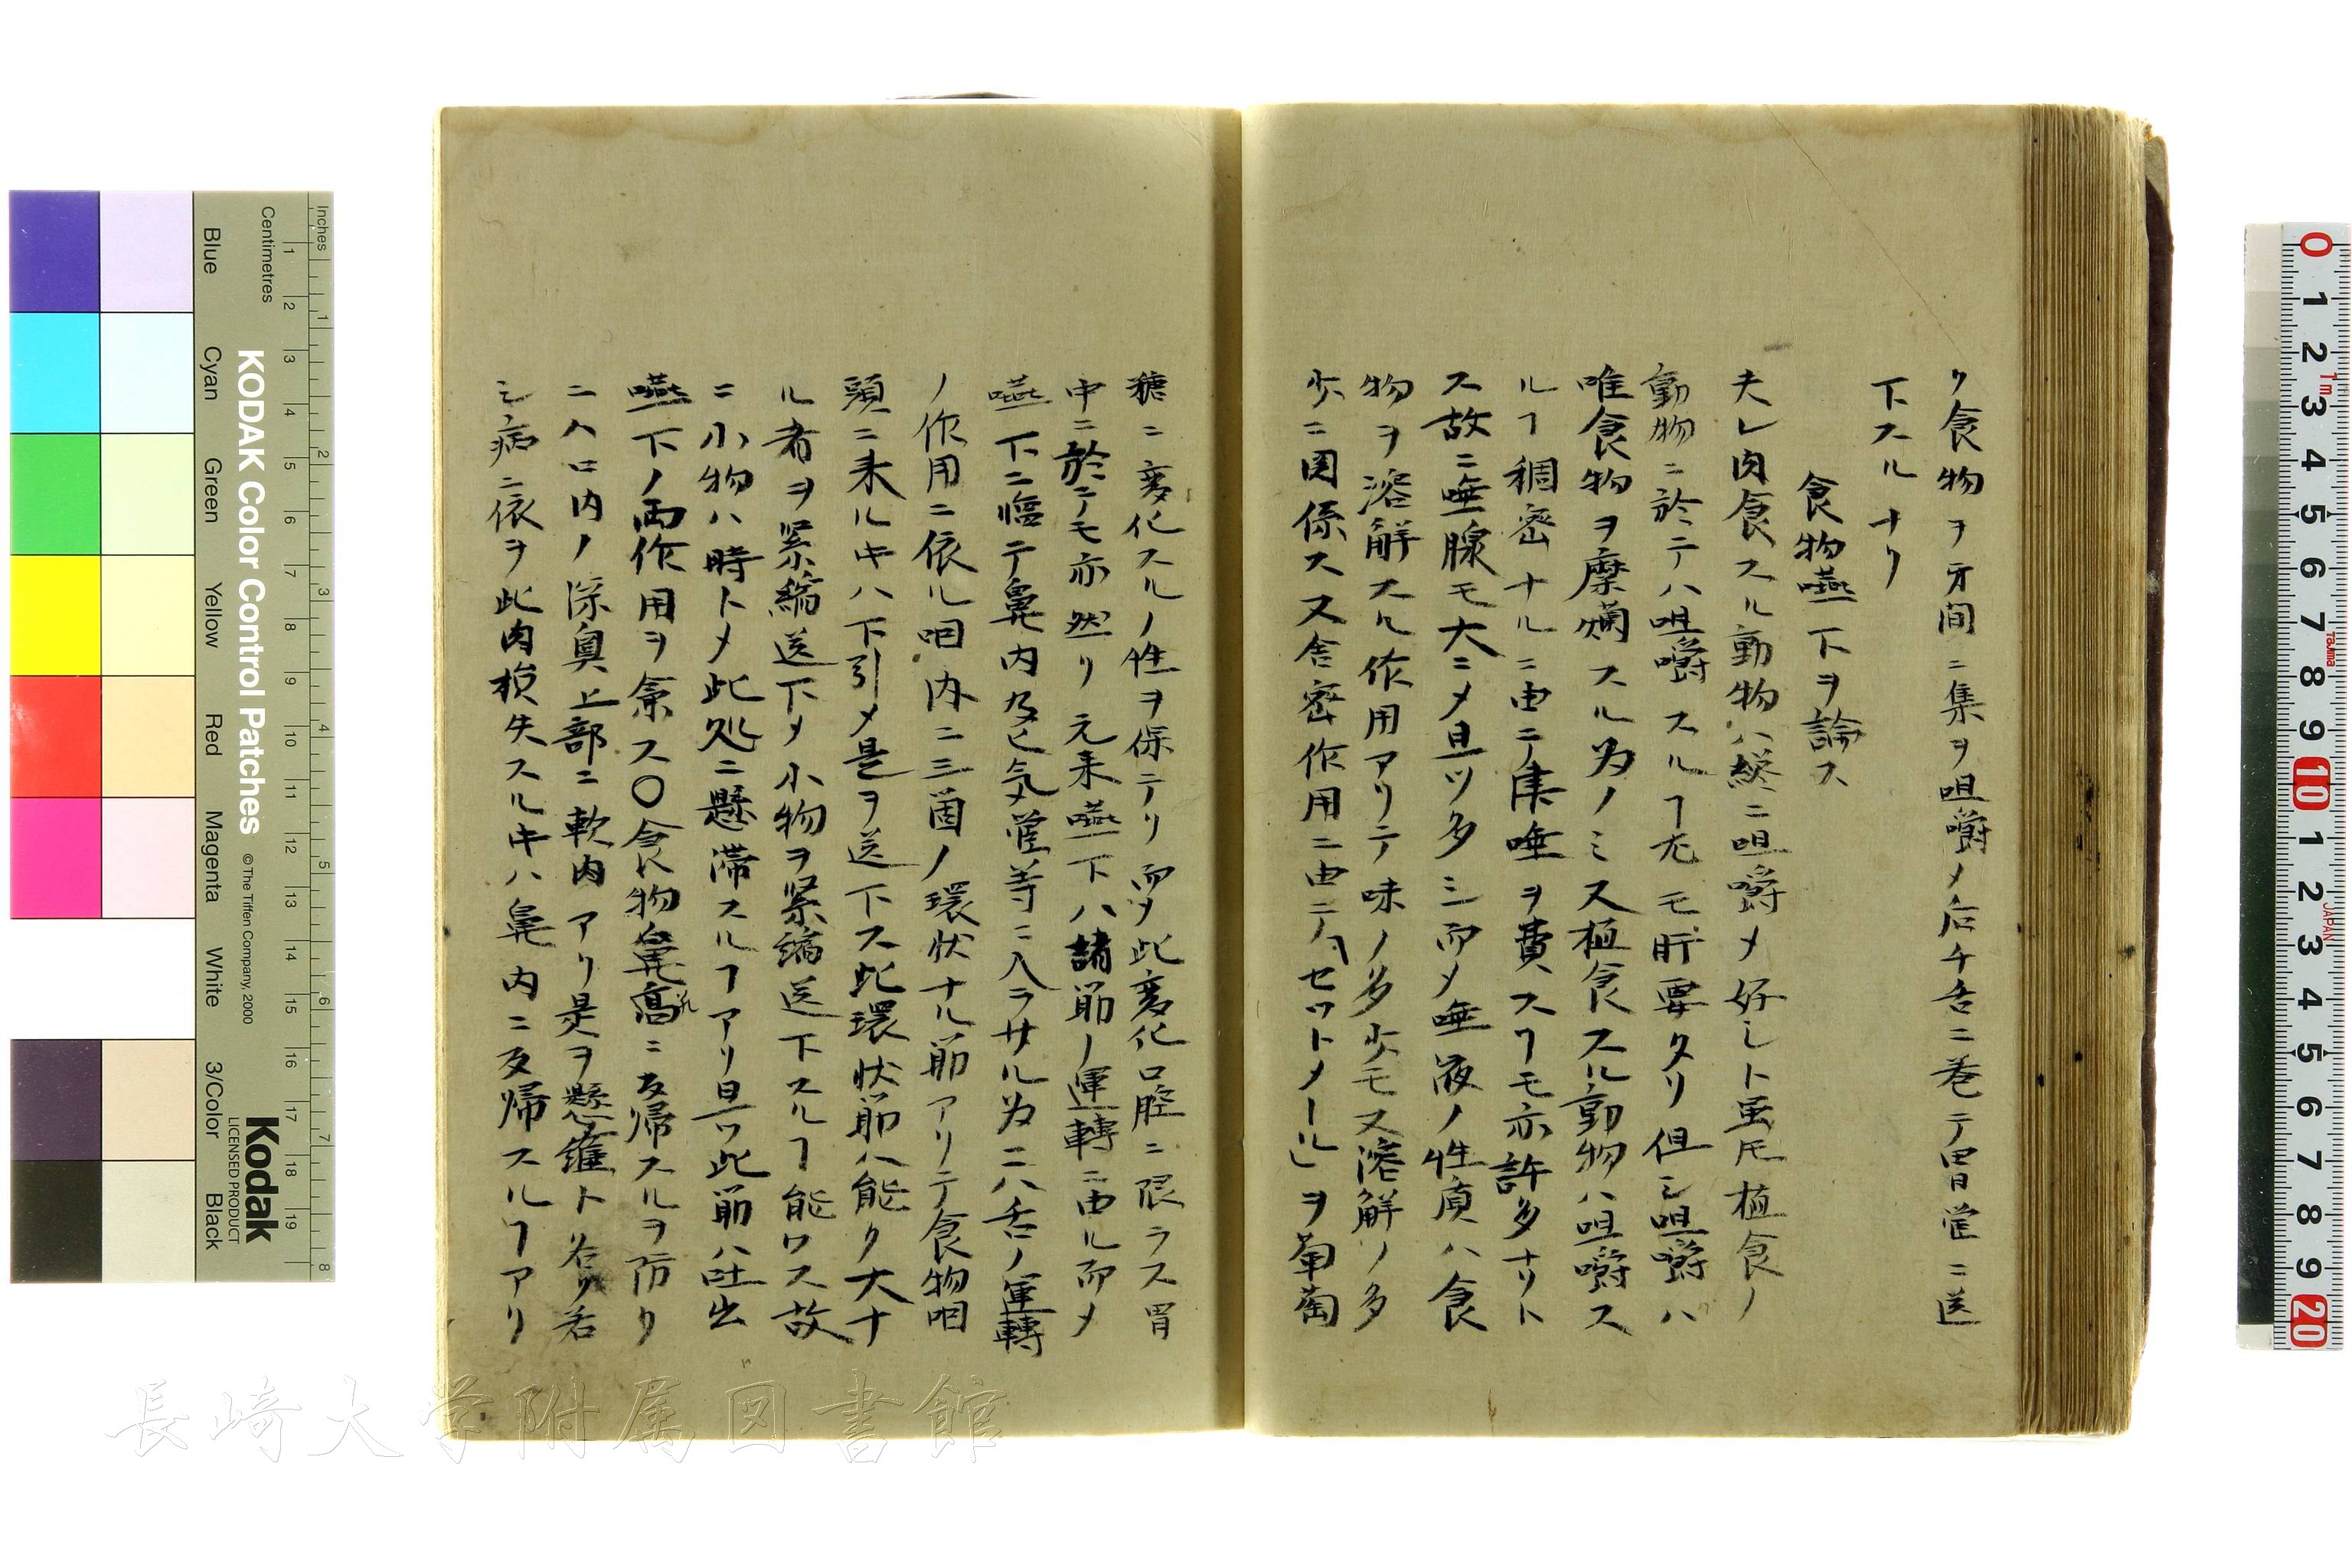 ク食物ヲ牙間ニ集ヲ咀嚼メ后チ舌ニ巻テ胃管ニ送
下スルナリ
食物嚥下ヲ論ス
夫レ肉食スル動物ハ縦ニ咀嚼メ好シト虽𪜈植食ノ
動物ニ於テハ咀嚼スルヿ尤モ肝要タリ但シ咀嚼ハ
唯食物ヲ糜爛スル为ノミス植食スル動物ハ咀嚼ス
ルヿ稠密ナルニ由テ津唾ヲ費スヿモ亦許多ナリト
ス故ニ唾腺モ大ニメ且ツ多シ而メ唾液ノ性質ハ食
物ヲ溶解スル作用アリテ味ノ多少モ又溶解ノ多
少ニ関係ス又舎密作用ニ由テ「セツトメール」ヲ葡萄
糖ニ変化スルノ性ヲ保テリ而メ此変化口腔ニ限ラス胃
中ニ於テモ亦然リ元来嚥下ハ諸筋ノ運轉ニ由ル而メ
嚥下ニ臨テ鼻内及ヒ気管等ニ入ラサル为ニハ舌ノ運轉
ノ作用ニ依ル咽内ニ三箇ノ環状ナル筋アリテ食物咽
頭ニ来ルキハ下引メ是ヲ送下ス此環状筋ハ能ク大ナ
ル者ヲ緊縮送下メ小物ヲ緊縮送下スルヿ能ワス故
ニ小物ハ時トメ此処ニ懸滞スルヿアリ且ツ此筋ハ吐出
嚥下ノ両作用ヲ兼ス〇食物鼻高孔ニ反帰スルヲ防ク
ニハ口内ノ深奥上部ニ軟肉アリ是ヲ懸壅ト名ク若
シ病ニ依ヲ此肉損失スルキハ鼻内ニ反帰スルヿアリ
KODAK Color Control Patches
© The Tiffen Company, 2000
Kodak
LICENSED PRODUCT
Inches
Centimetres
Blue
Cyan
Green
Yellow
Red
Magenta
White
3/Color
Black
1 2 3 4 5 6 7 8
1 2 3 4 5 6 7 8 9 10 11 12 13 14 15 16 17 18 19
0 1 2 3 4 5 6 7 8 9 10 1 2 3 4 5 6 7 8 9 20
1m
Tajima
JAPAN
長崎大学附属図書館